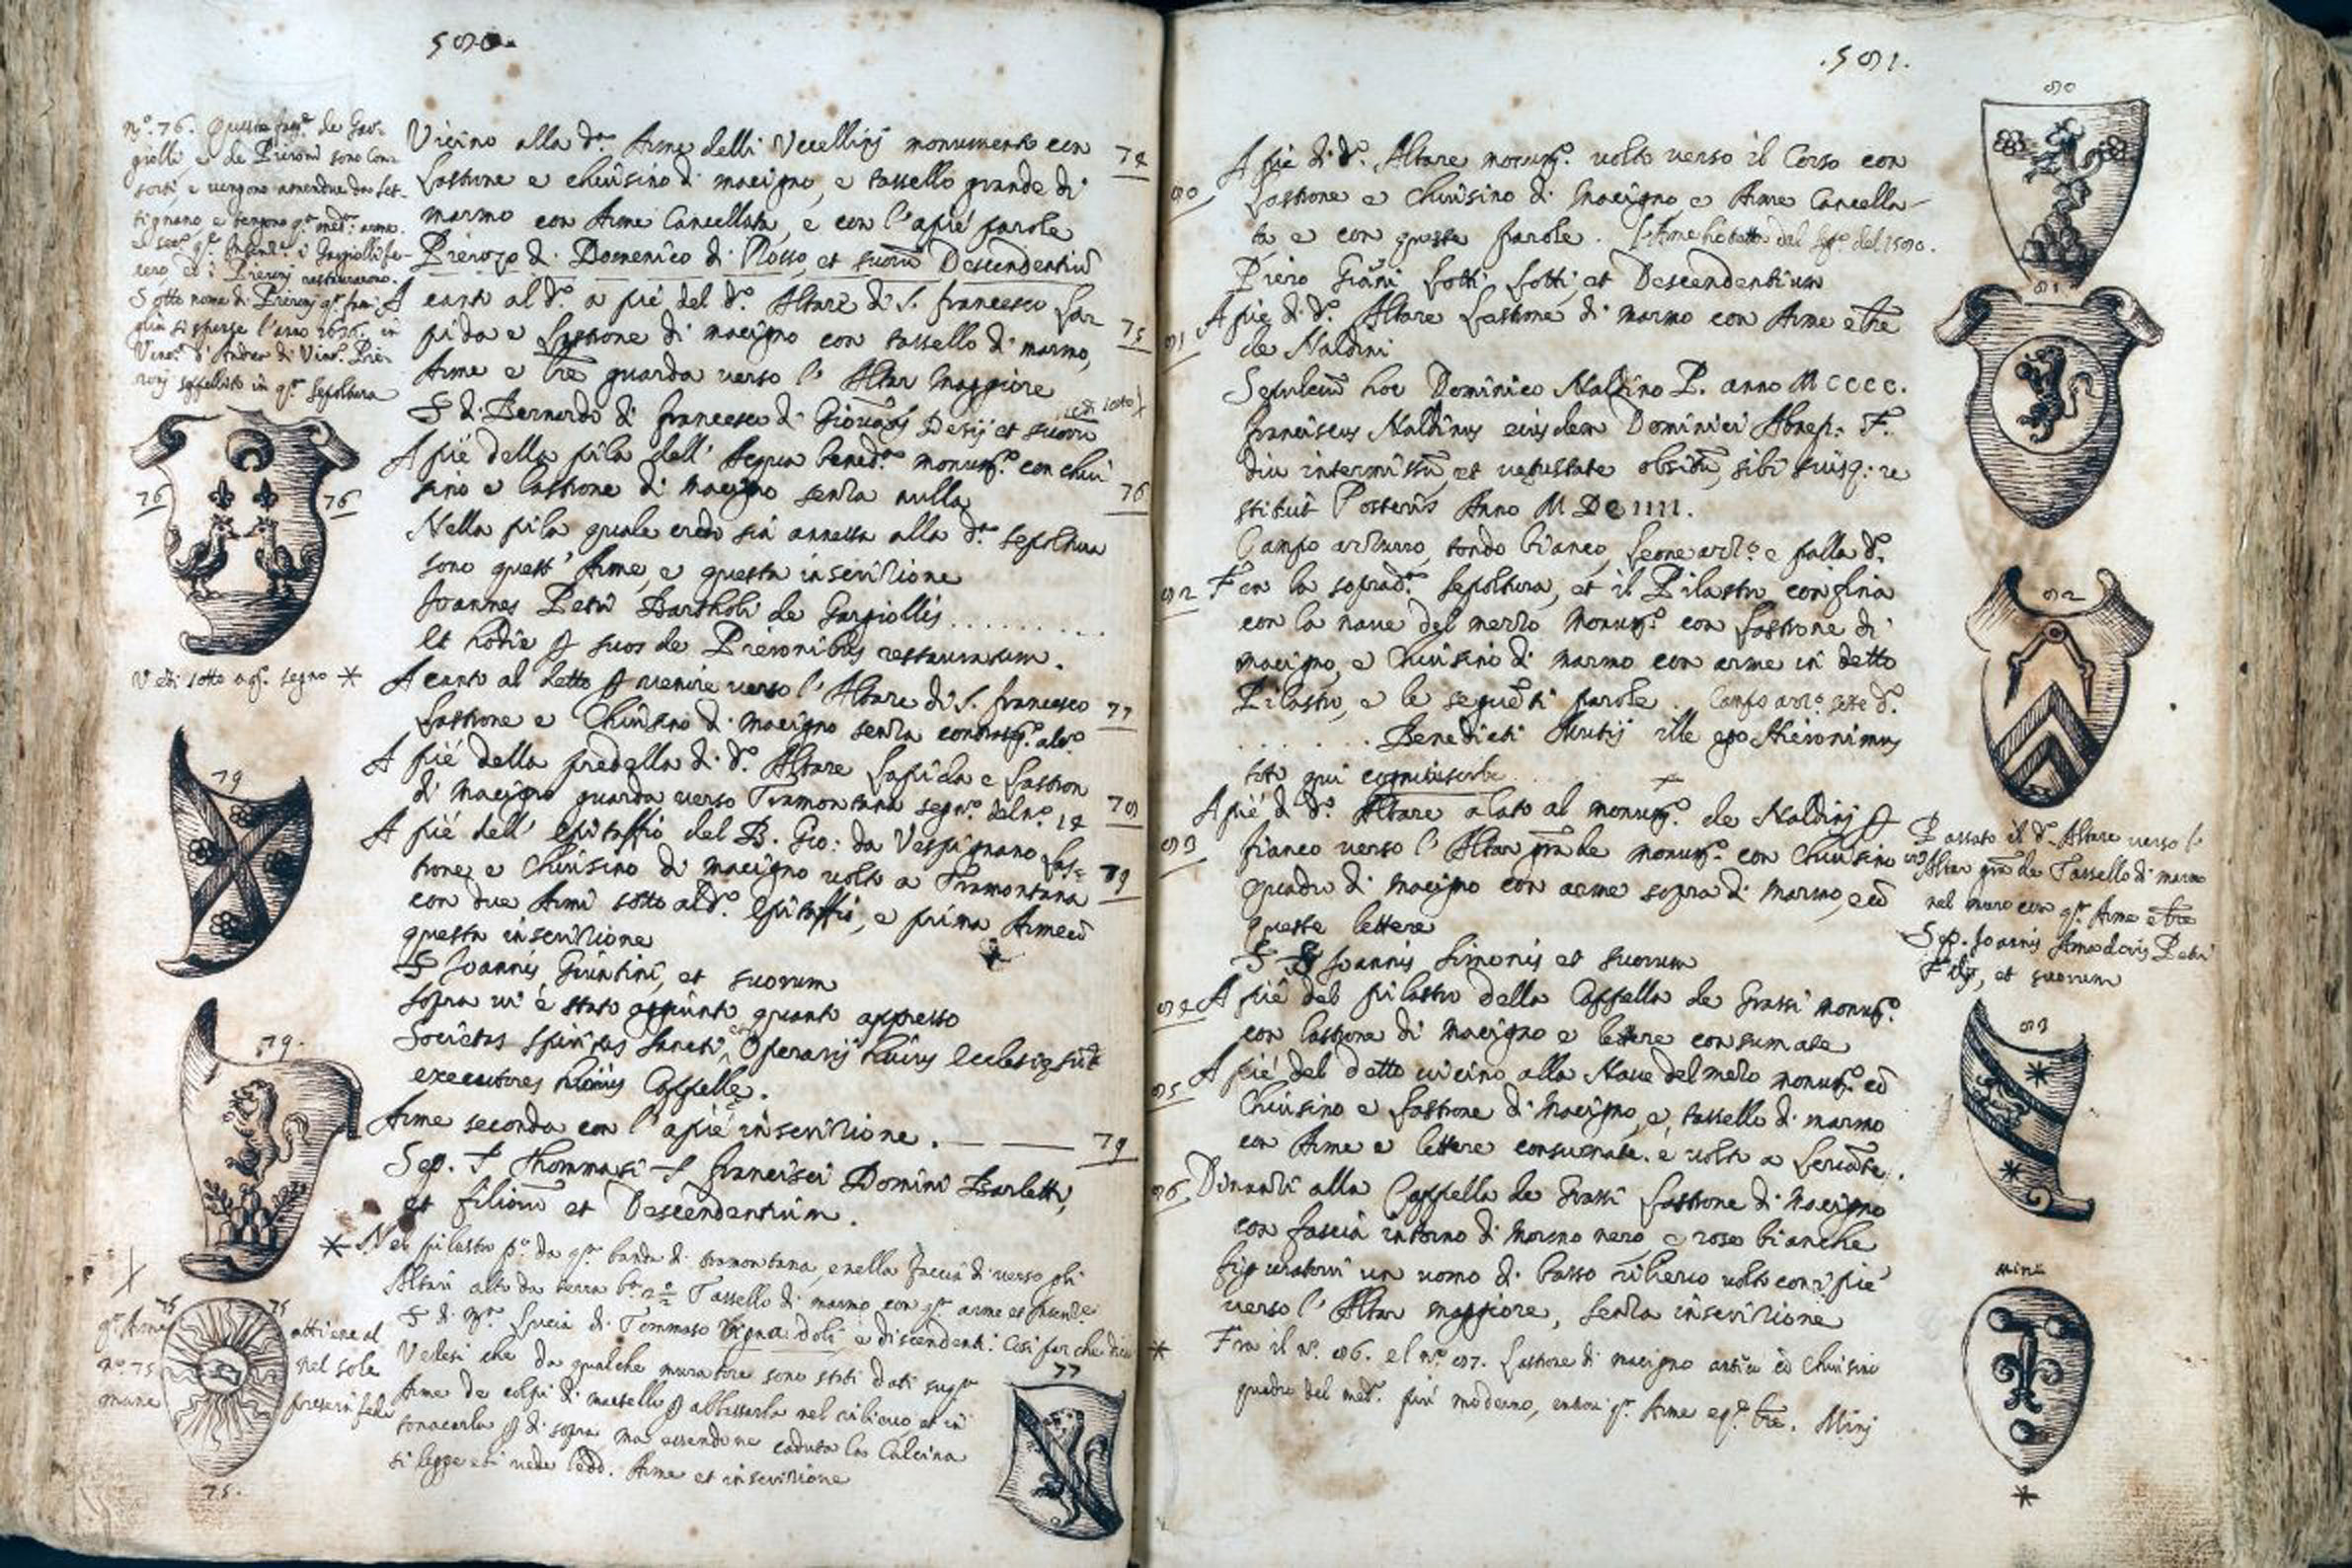 580.
nº. 76. Queste fam.e de Gar-
giolli, e de Pieroni sono Con-
sorti, e vengono amendue da Set-
tignano, e tengono q.a med.a arme.
rono, ed i Pieronj restaurarono.
Sotto nome di Pieronj q.a fami-
glia si sperse l'anno 1636. in
Vinc.o d'Andrea di Vinc.o Pie-
ronj seppellito in q.a Sepoltura
76 76
Vedi sotto a q.o segno *
79
79.
Vicino alla d.a Arme delli Uccellinj monumento con
Lastrone e chiusino di macigno, e tassello grande di
marmo con Arme Cancellata, e con l'apiè parole
Pierozo di Domenico di Rosso, et suorũ Descendentiũ
74
Acanto al d.o a piè del d.o Altare di S. francesco Lap
pida e Lastrone di macigno con tassello di marmo,
Arme e lre guarda verso l'Altar Maggiore
75
S di Bernardo di francesco di Giovanj Desij et suorũ
A piè della pila dell'Acqua bened.a monum.o con chiu
sino e lastrone di Macigno senza nulla
76
Nella pila quale credo sia annessa alla d.a sepoltura
sono quest'Arme, e questa inscrizione
Joannes Petri Bartholi de Gargiollis..........
Et hodie p suos de Pieronibus restauratum.
Acanto al detto p venire verso l'Altare di S. francesco
Lastrone e Chiusino di Macigno senza contrasg.o alc.o
77
A piè della predella di d.o Altare Lapida e Lastron
di Macigno guarda verso Tramontana segn.o del n.o 14
78
A piè dell'Epitaffio del B. Gio: da Vespignano Las=
trone e Chiusino di macigno volto a Tramontana
79
con due Armi sotto al d.o Epitaffio, e prima Arme cõ
questa inscrizione
S Joannis Giuntini, et suorum
sopra vi è stato aggiunto quanto appresso
Societas Spiritus Sancti, et Operarij huius Ecclesie sũt
executores huius Cappelle.
Arme seconda con l'apiè inscrizione. — — 79
Sep. S Thommasi S francisci Domini Barletti,
et filiorũ et Descendentium.
* Nel pilastro p.o da q.a banda di tramontana, e nella faccia di verso gli
Altari alto da terra b.a 2 1/2 Tassello di marmo con q.a arme et
S di M.a Lucia di Tommaso Vigna doli, e discendenti. Cosi par che dica
Vedesi che da qualche muratore sono stati dati su q.a
Arme de colpi di martello p
tonacarla p di sopra, ma essendone caduta la Calcina
si legge et si vede Arme et inscrizione
75 75
q.a Arme
nº 75
attiene al
nel sole
75.
77
.581.
80
A piè di d.o Altare monum.o volto verso il Corso con
Lastrone e Chiusino di Macigno e Arme Cancella-
ta e con queste parole.
Piero Giãni Lotti Lotti, et Descendentium
80
81
A piè di d.o Altare Lastrone di marmo con Arme e lre
de Naldini
Sepulcrũ hoc Dominico Naldino P. anno MCCCC.
franciscus Naldinus eiusdem Dominici Abnep: F.
diu intermissũ, et vetustate obsitũ, sibi suisq: re
stituit Posteris Anno MDCIIII.
Campo azzurro, tondo bianco, Leone azz.o e palla d.a
81
82
Fra la soprad.a Sepoltura, et il Pilastro confina
con la nave del mezzo Monum.o con Lastrone di
macigno, e Chiusino di marmo con arme in detto
Pilastro, e le seguẽti parole. Campo azz.o seste d.o
. . . . . . . Benedicti ille ego Hieronimus
toti qui
82
83
A piè di d.o Altare alato al monum.o de Naldinj p
fianco verso l'Altar grãde monum.o con Chiusino
quadro di Macigno con arme sopra di Marmo, e cõ
queste lettere
S S Joannis Simonis et suorum
Passato il d.o Altare verso l'
Altar grã.de Tassello di marmo
nel muro con q.a Arme e lre
Sep. Joannis Amadoris Petri
Filij, et suorum
84
A piè del pilastro della Cappella de Grassi Monum.o
con lastrone di Macigno e lettere consumate
85
A piè del detto vicino alla Nave del mezo monum.o cõ
Chiusino e Lastrone di Macigno, e, tassello di marmo
con Arme e lettere consumate. e volto a Levãte.
83
86
Dinanzi alla Cappella de Grassi Lastrone di Macigno
con fascia intorno di Marmo nero e roso bianche
figuratovi un uomo di basso rilievo volto con i piè
verso l'Altar maggiore, senza inscrizione
Mini
* Fra il nº. 86. e l nº. 87. Lastrone di macigno antico cõ Chiusino
quadro del med.o più moderno, entrovi q.a Arme e q.e lre. Minj
*